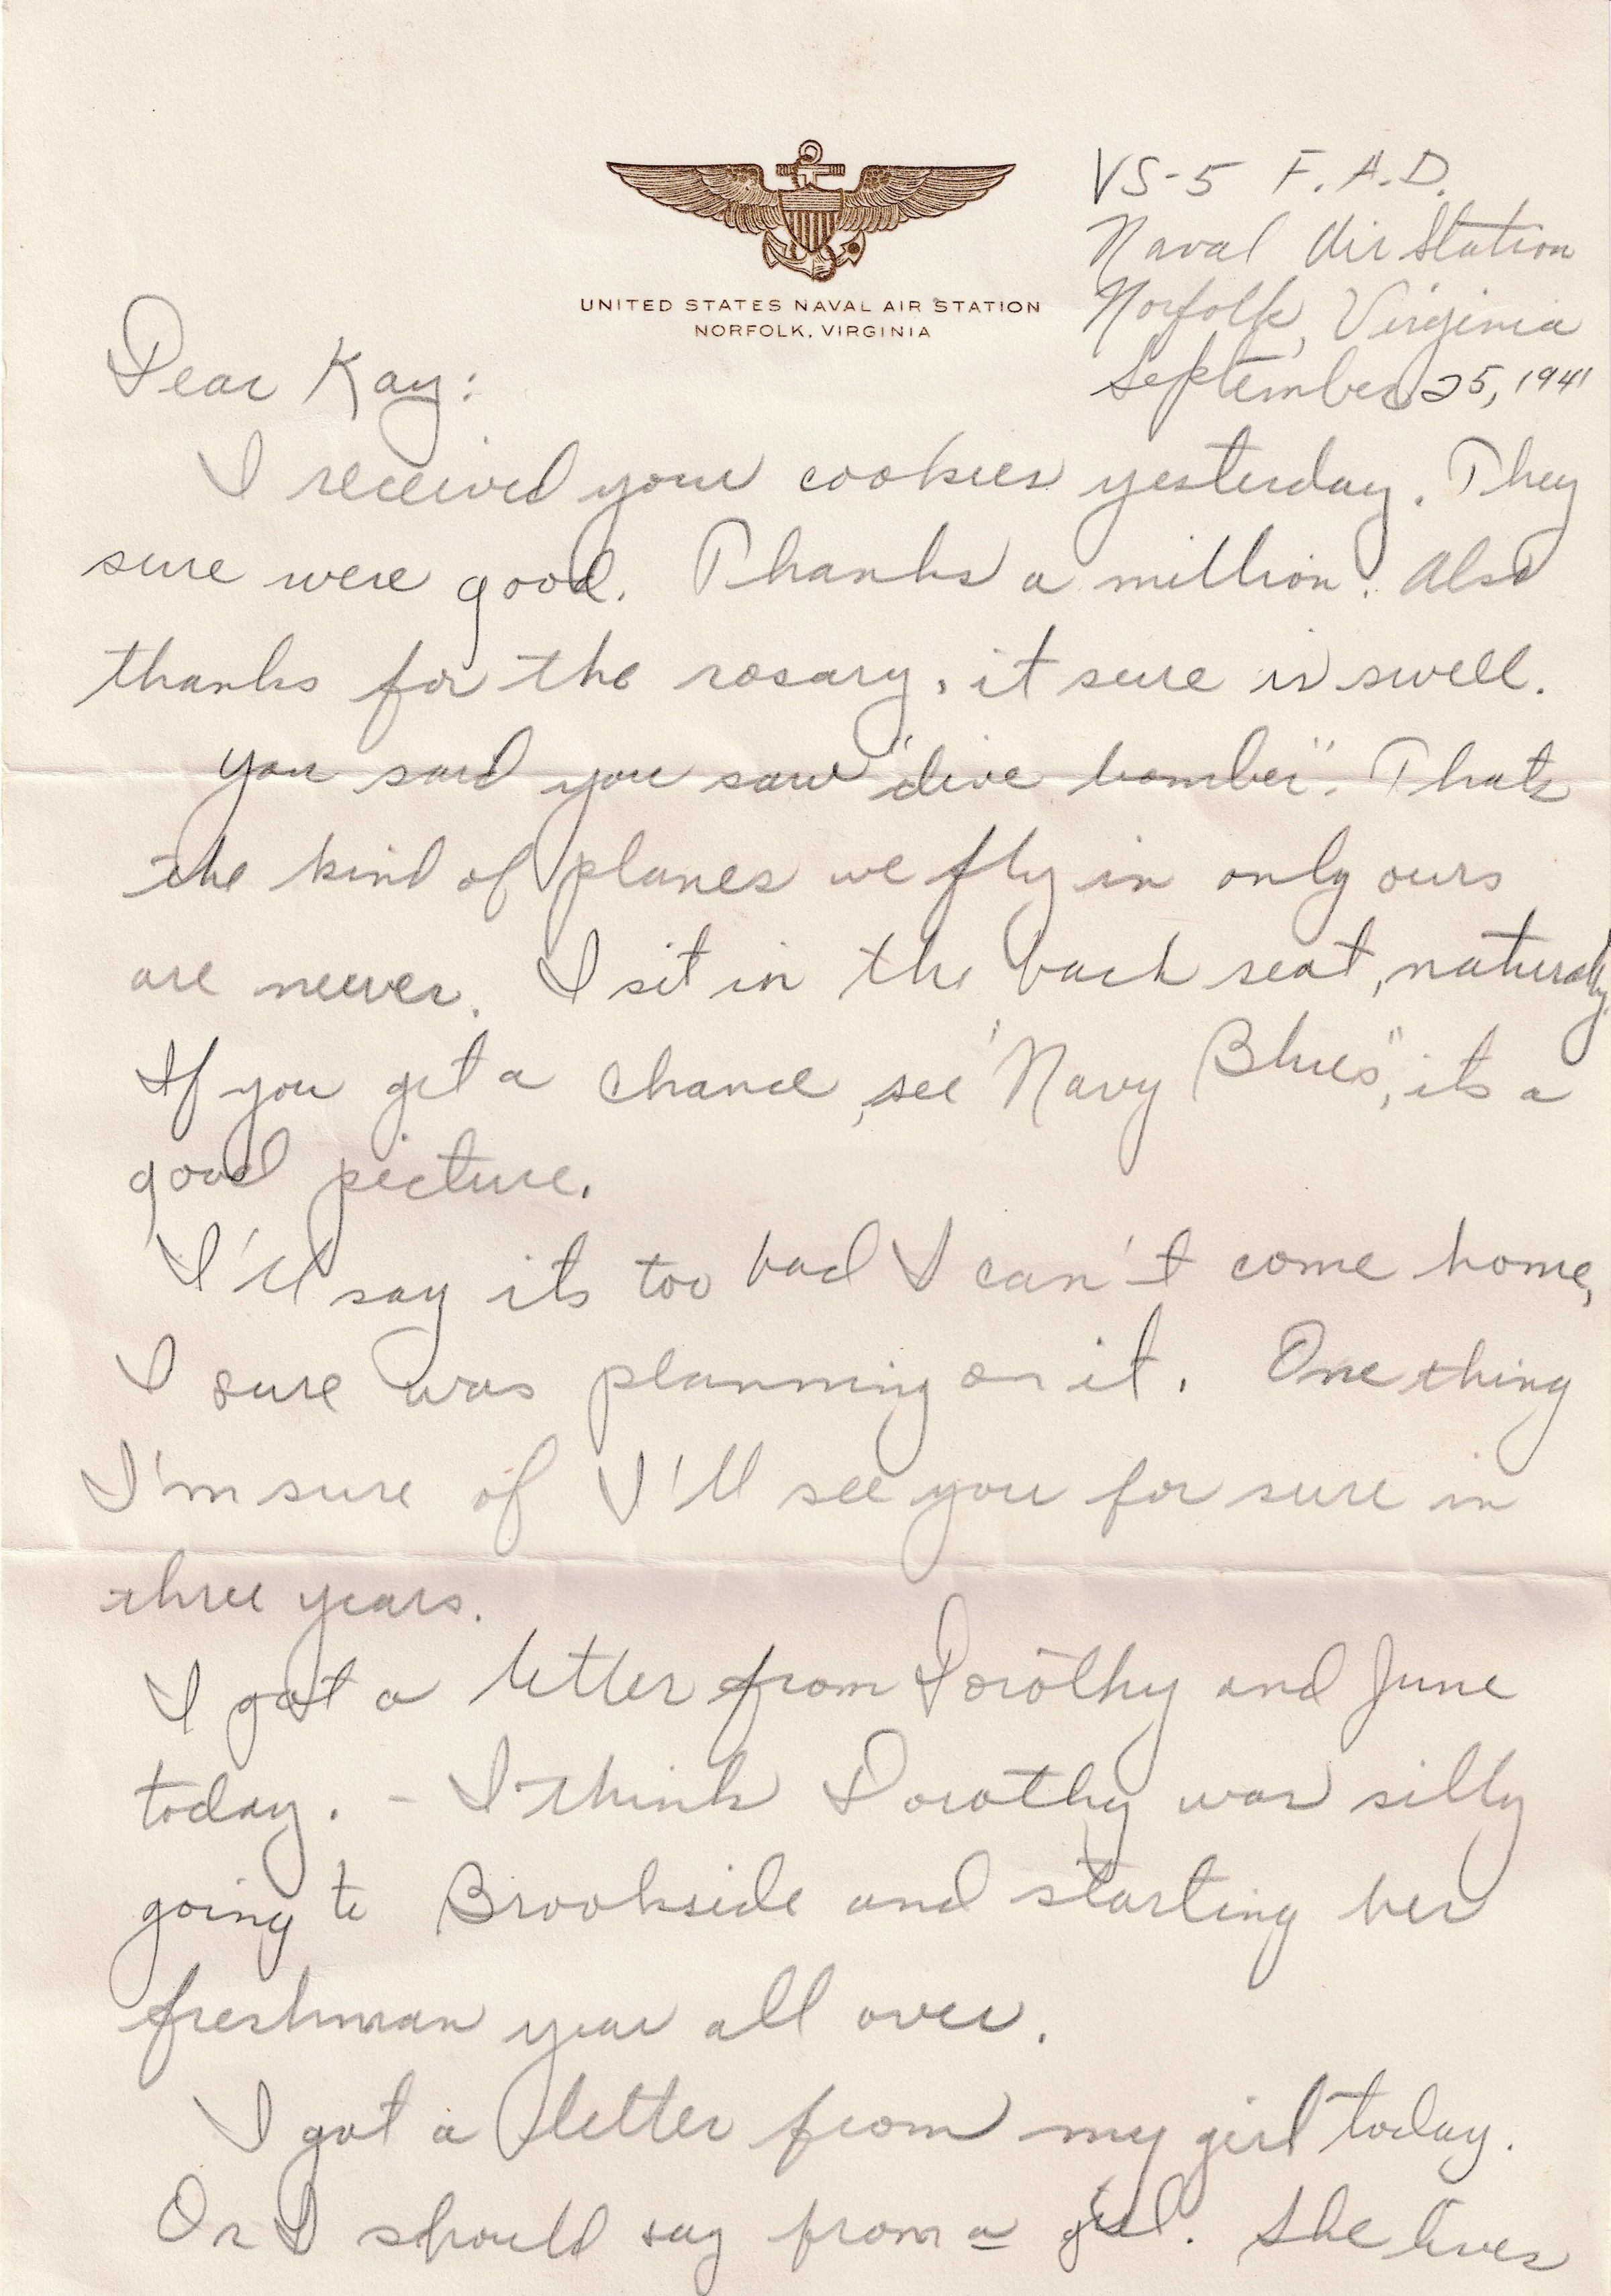 VS-5 F.A.D.
Naval Air Station
Norfolk, Virginia
September 25, 1941
UNITED STATES NAVAL AIR STATION
NORFOLK, VIRGINIA
Dear Kay:
I received your cookies yesterday. They
sure were good. Thanks a million. Also
thanks for the rosary, it sure is swell.
You said you saw "dive bomber". Thats
the kind of planes we fly in only ours
are newer. I sit in the back seat, naturally.
If you get a chance, see "Navy Blues", its a
good picture.
I'll say its too bad I can't come home,
I sure was planning on it. One thing
I'm sure of I'll see you for sure in
three years.
I got a letter from Dorothy and June
today. - I think Dorothy was silly
going to Brookside and starting her
freshman year all over.
I got a letter from my girl today.
Or I should say from a girl. She lives